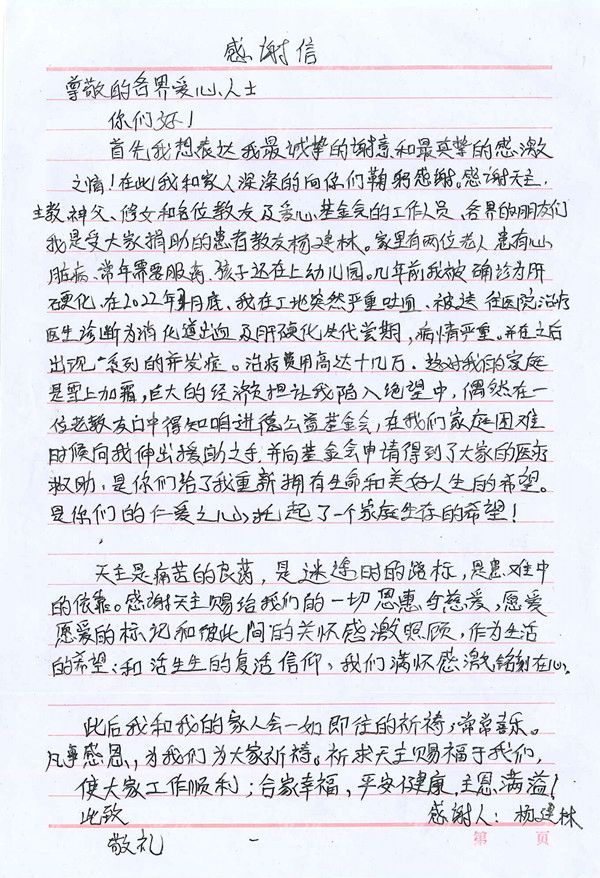 感谢信
尊敬的各界爱心人士
你们好！
首先我想表达我最诚挚的谢意和最真挚的感激
之情！在此我和家人深深的向你们鞠躬感谢。感谢天主，
主教，神父、修女和各位教友及爱心基金会的工作人员、各界的朋友们
我是受大家捐助的患者教友杨建林。家里有两位老人患有心
脏病、常年需要服药，孩子还在上幼儿园。几年前我被确诊为肝
硬化，在2022年 月底、我在工地突然严重吐血、被送往医院治疗
医生诊断为消化道出血及肝硬化失代偿期，病情严重。并在之后
出现一系列的并发症。治疗费用高达十几万. 这对我的家庭
是雪上加霜，巨大的经济负担让我陷入绝望中，偶然在一
位老教友口中得知咱进德公益基金会，在我们家庭困难
时候向我伸出援助之手并向基金会申请得到了大家的医疗
救助，是你们给了我重新拥有生命和美好人生的希望。
是你们的仁爱之心，托起了一个家庭生存的希望！
天主是痛苦的良药，是迷途时的路标，是患难中
的依靠。感谢天主赐给我们的一切恩惠与慈爱，恩爱
恩爱的标记和彼此间的关怀感激照顾，作为生活
的希望；和活生生的复活信仰，我们满怀感激铭刻在心。
此后我和我的家人会一如即往的祈祷，常常喜乐。
凡事感恩，为我们为大家祈祷。祈求天主赐福于我们，
使大家工作顺利；合家幸福，平安健康，主恩满溢！
此致 感谢人：杨建林
敬礼
第 页